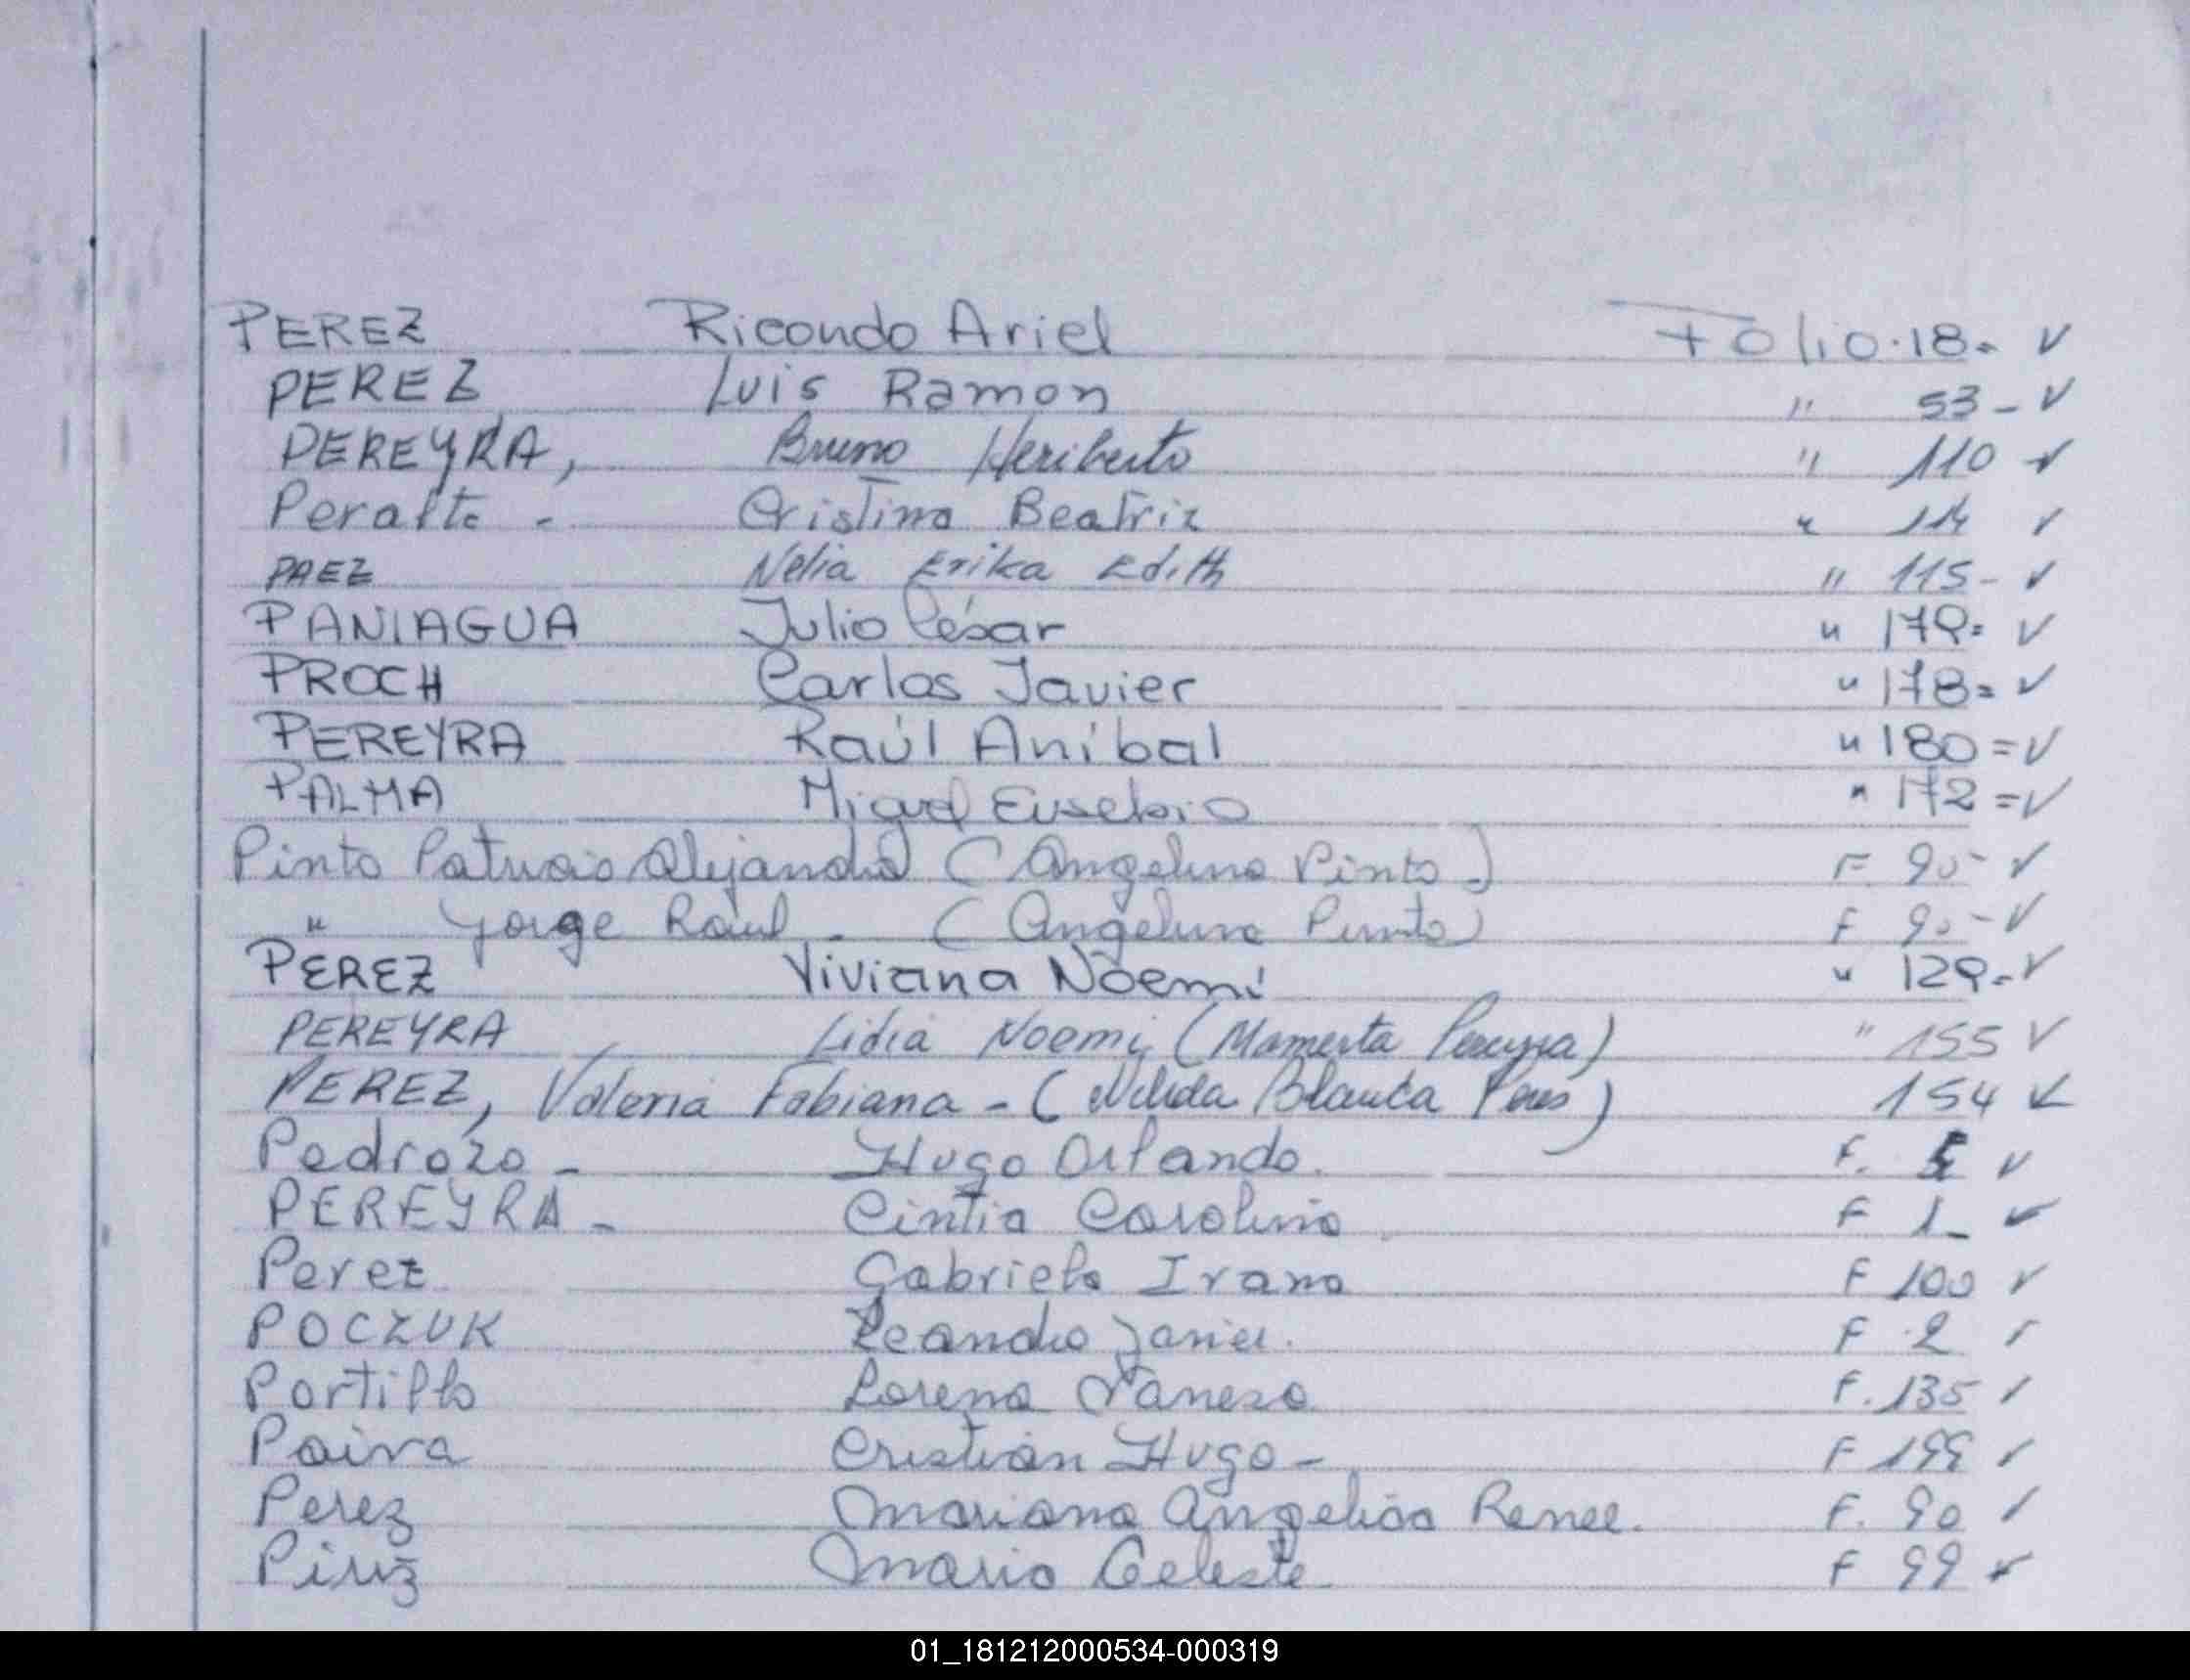 PEREZ Ricondo Ariel Folio.18- ✓
PEREZ Luis Ramon " 53- ✓
PEREYRA, Bruno Heriberto " 110 ✓
Peralta - Cristina Beatriz " 114 ✓
PAEZ Nelia Erika Edith " 115- ✓
PANIAGUA Julio César " 179= ✓
PROCH Carlos Javier " 178= ✓
PEREYRA Raúl Aníbal " 180=✓
PALMA Miguel Eusebio " 172=✓
Pinto Patricio Alejandro (Angelina Pinto) F 90- ✓
" Jorge Raul - (Angelina Pinto) F 90-✓
PEREZ Viviana Noemí " 129-✓
PEREYRA Lidia Noemi (Mamerta Pereyra) " 155 ✓
PEREZ, Valeria Fabiana - (Nelida Blanca Peres) 154 ✓
Pedrozo - Hugo Orlando. F. ✓
PEREYRA - Cintia Carolina F 1- ✓
Perez Gabriela Ivana F 100 ✓
POCZUK Leandro Javier. F 2 ✓
Portillo Lorena Vanesa F.135 ✓
Paiva Cristian Hugo - F 199 ✓
Perez Mariana Angelica Renee. F. 90 ✓
Piriz Maria Celeste F 99 ✓
01_181212000534-000319